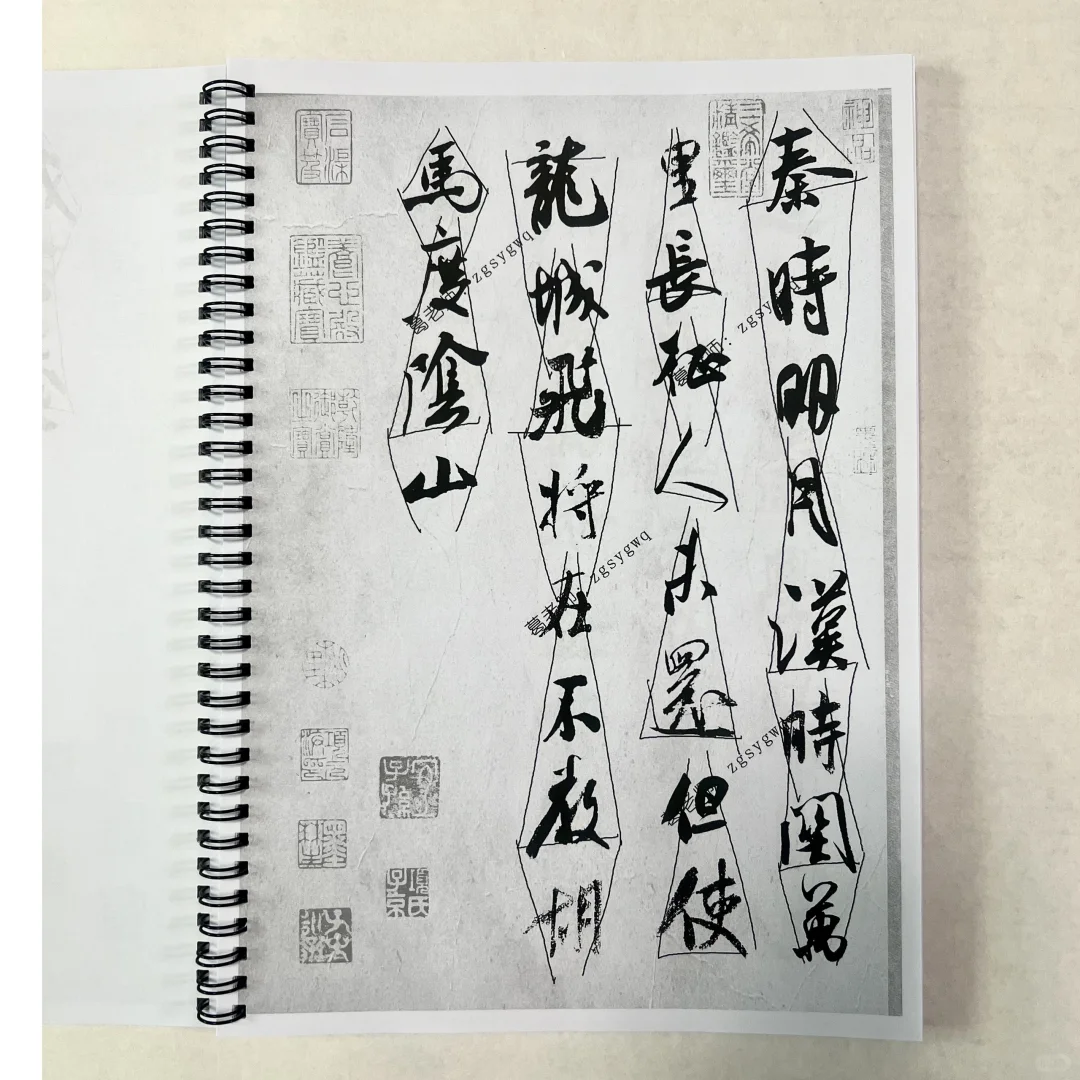 秦時明月漢時關萬
里長征人未還但使
龍城飛將在不教胡
馬度陰山
神品
zgsygwq
zgsygwq
zgsygwq
zgsygwq